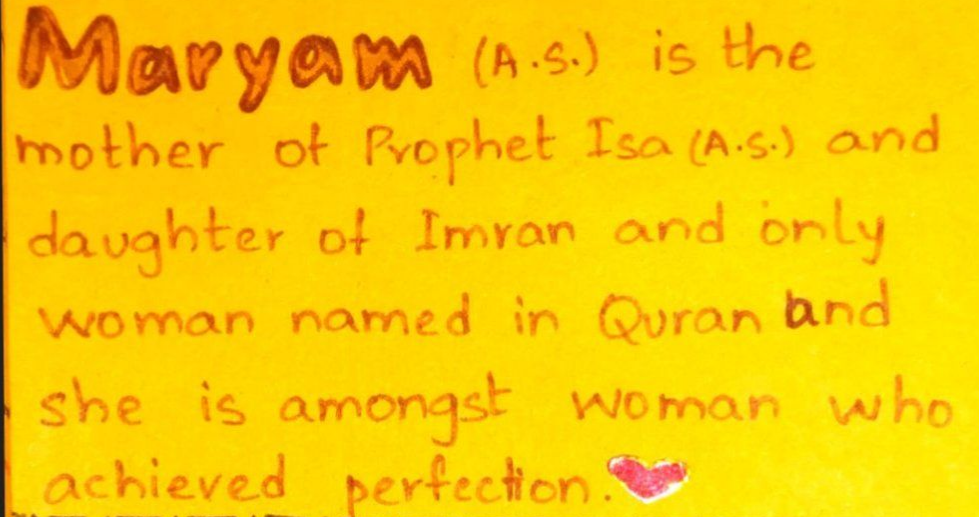 Maryam (A.S.) is the
mother of Prophet Isa (A.S.) and
daughter of Imran and only
woman named in Quran and
she is amongst woman who
achieved perfection.